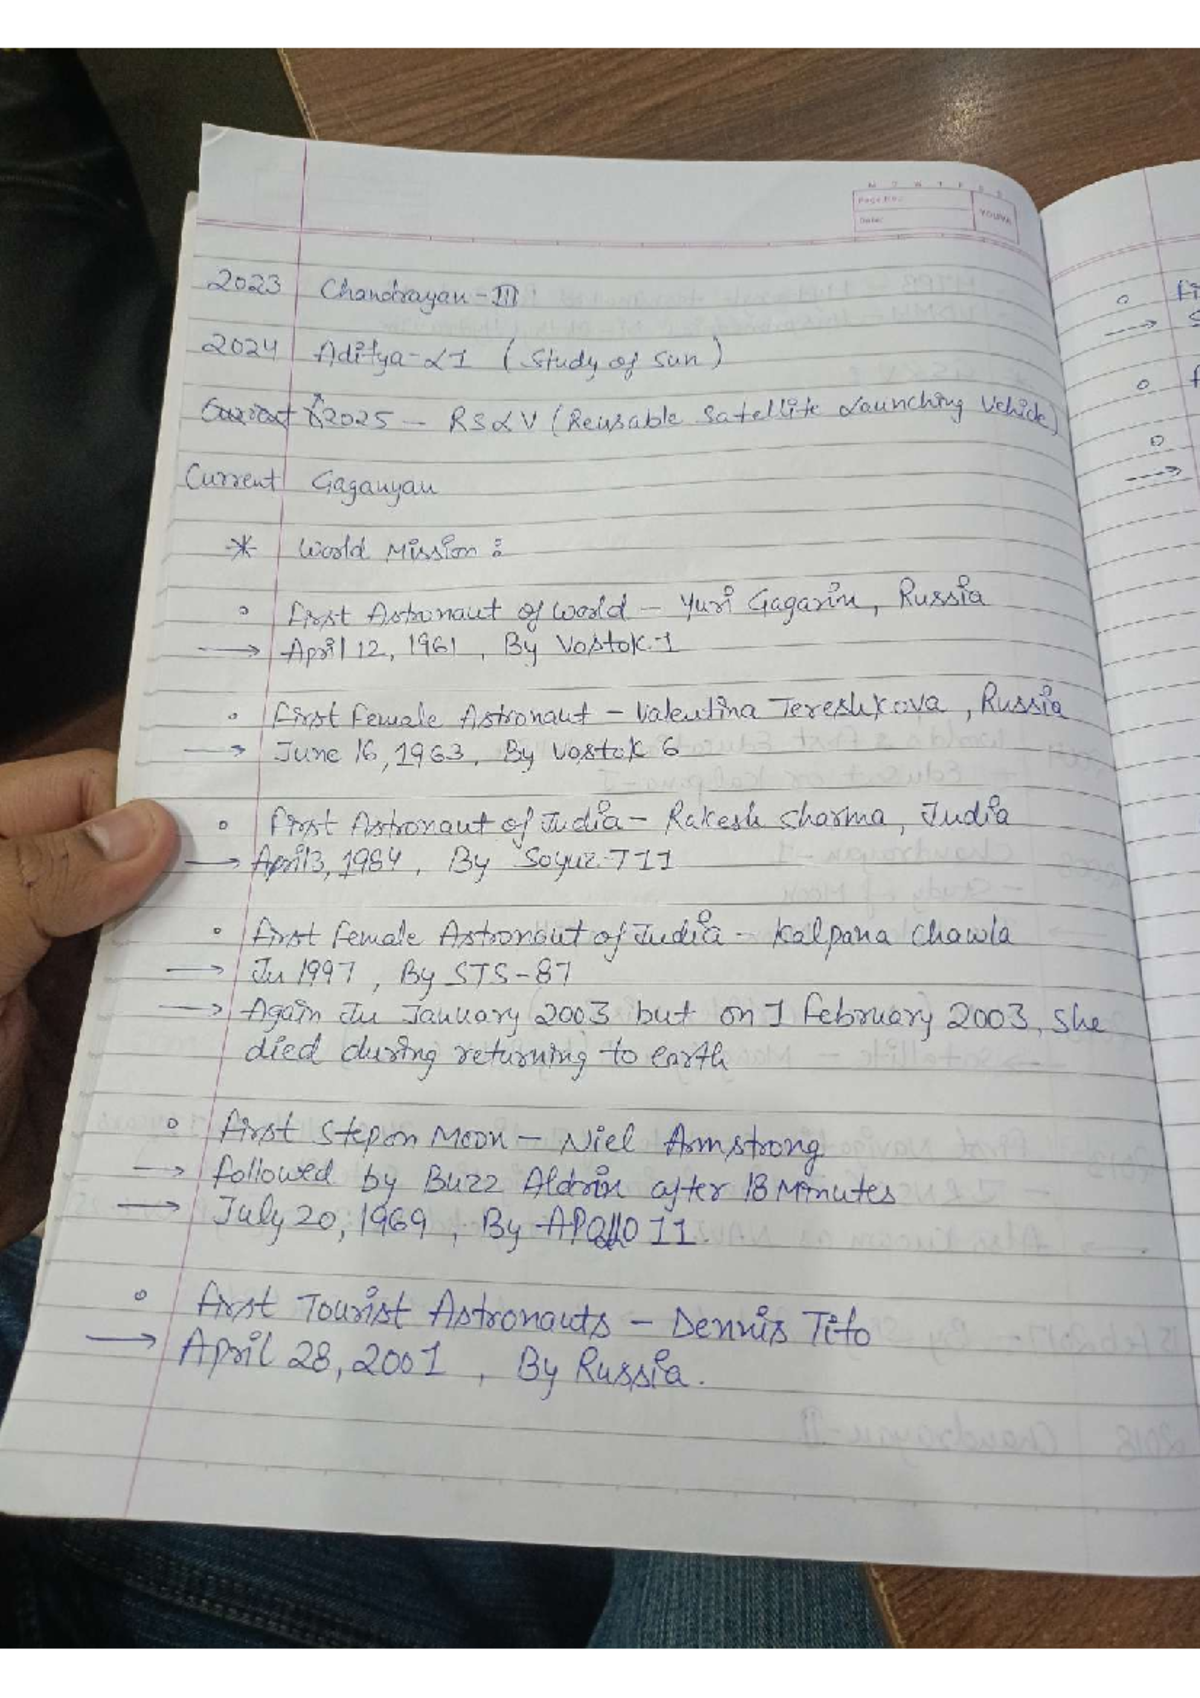 Page No.:
Date:
YOUVA
2023 Chandrayan-III
2024 Aditya-L1 (Study of Sun)
2025 - RSLV (Reusable Satellite Launching Vehicle)
Current Gaganyan
* World Mission :
First Astronaut of World - Yuri Gagarin, Russia
→ April 12, 1961, By Vostok-1
First Female Astronaut - Valentina Tereshkova, Russia
→ June 16, 1963, By Vostok 6
First Astronaut of India - Rakesh Sharma, India
→ April 3, 1984, By Soyuz-T11
First female Astronaut of India - Kalpana Chawla
→ In 1997, By STS-87
→ Again In January 2003 but on 1 February 2003, She
died during returning to earth
First Step on Moon - Niel Armstrong
→ followed by Buzz Aldrin after 18 Minutes
→ July 20, 1969, By APollo 11
First Tourist Astronauts - Dennis Tito
→ April 28, 2001, By Russia.